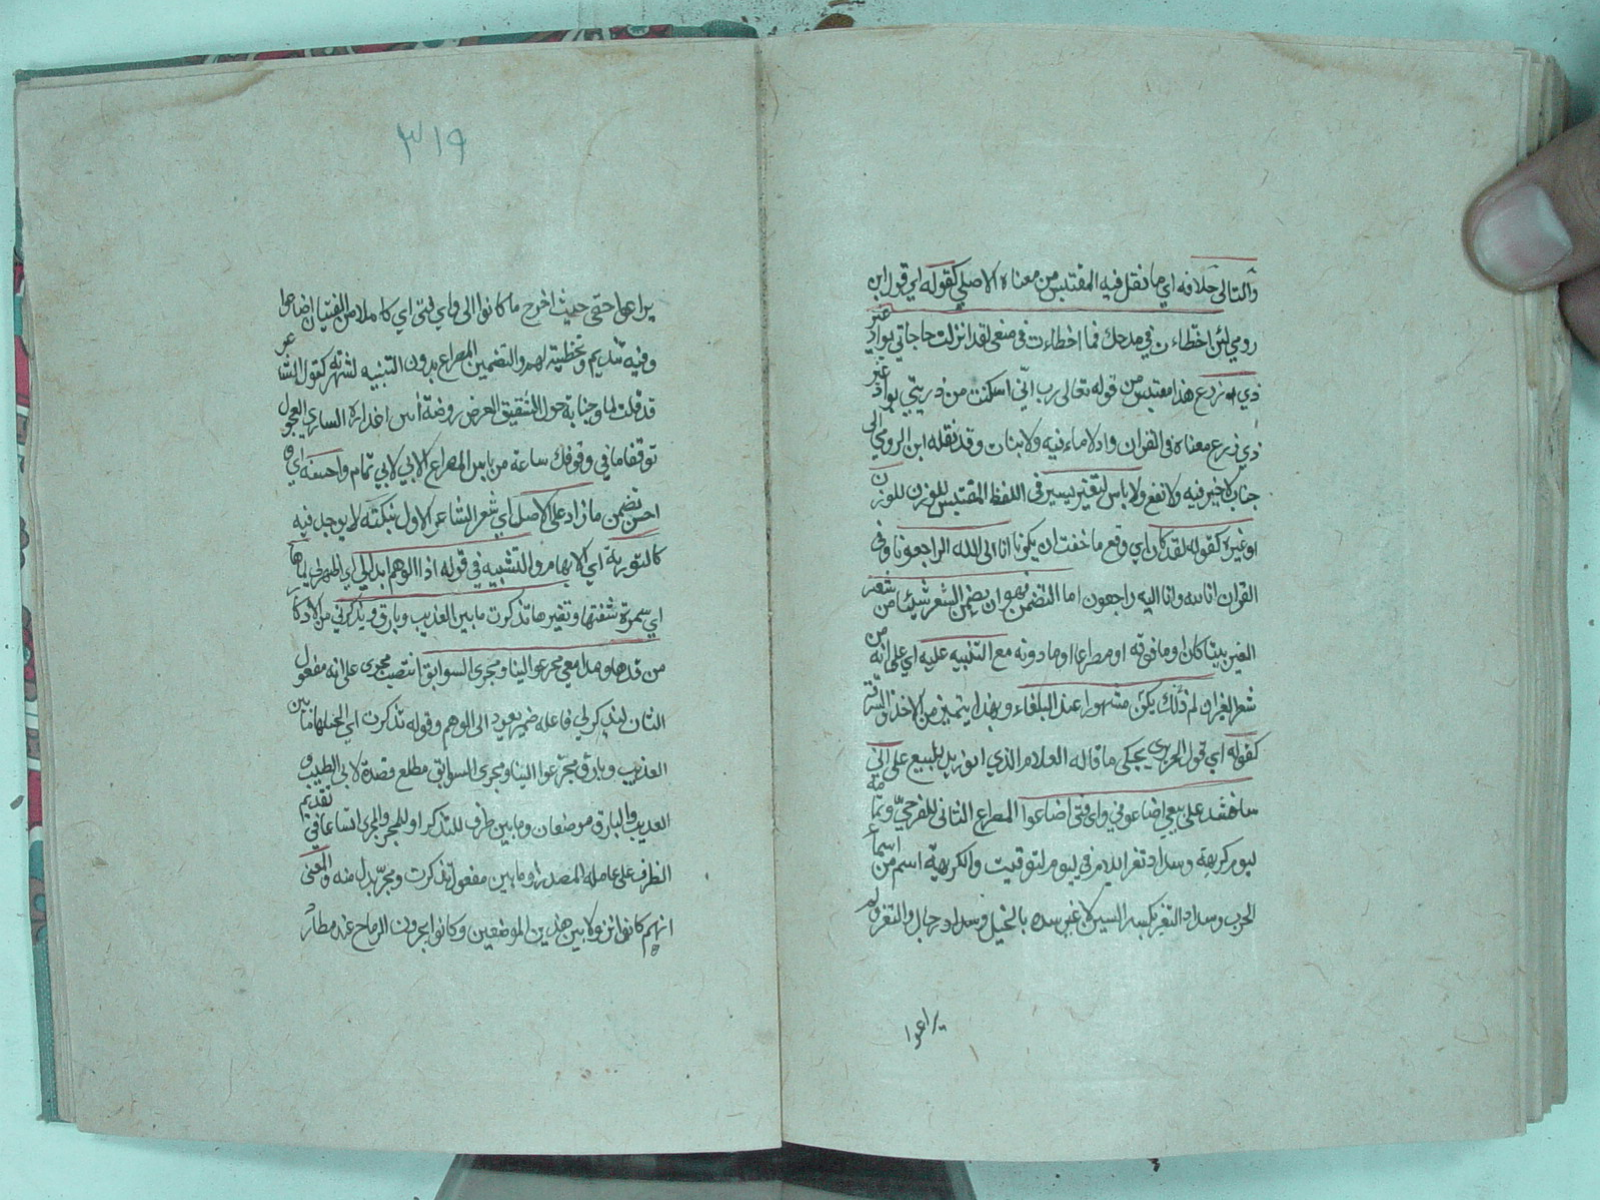 والثاني خلافه اي ما نقل فيه المقتبس من معناه الاصلي كقوله اي قول ابن
رومي لئن اخطاءت في مدحك فما اخطاءت في منعي لقد انزلت حاجاتي بواد غير
ذي زرع هذا مقتبس من قوله تعالى رب اني اسكنت من ذريتي بواد غير
ذي زرع معناه في القران واد لا ماء فيه ولا نبات وقد نقله ابن الرومي الى
جناب لا خير فيه ولا نفع ولا باس لتغير يسير في اللفظ المقتبس للوزن
او غيره كقوله لقد كان اي وقع ما خفت ان يكونا انا الى الله الراجعونا وفي
القران انا لله وانا اليه راجعون اما التضمن فهو ان يضمن الشعر شيئا من شعر
الغير بيتا كان او ما فوقه او مصراعا او ما دونه مع التنبيه عليه اي على انه من
شعر الغير ان لم يكن ذلك مشهورا عند البلغاء وبهذا يتميز من الاخذ والسرقة
كقوله اي قول الحريري يحكي ما قاله الغلام الذي ابو زيد للبيع على اني
سانشد عند بيعي اضاعوني واي فتى اضاعوا المصراع الثاني للعرجي وتمامه
ليوم كريهة وسداد ثغر اللام في ليوم لتوقيت والكريهة اسم من اسماء
الحرب وسداد الثغر بكسر السين لا غير سده بالخيل وسداد رجال والثغر
يراعوا
٣١٩
يراعوا حقي حيث اخرج ما كانوا الي واي فتى اي كاملا من الفتيان اضاعوا
وفيه تنديم وتخطية لهم والتضمين المصراع بدون التنبيه لشهرته كقول الشاعر
قد قلت لما حول الشقيق الغض روضة اس اعذاره الساري العجول
توقفا ما في وقوفك ساعة من باس المصراع الاني لابي تمام واحسنه اي
احسن تضمن ما زاد على الاصل اي شعر الشاعر الاول بنكتة لا يوجد فيه
كالتورية اي الابهام والتشبيه في قوله اذا الوهم ابدا لي اي اظهر لي لماها
اي سمرة شفتها وثغرها تذكرت ما بين العذيب وبارق ويذكرني من
من قدها ومدامعي مجر عوالينا ومجرى السوابق انتصب مجرى على انه مفعول
الثان ليذكرني فاعله ضمير يعود الى الوهم وقوله تذكرت ما بين
العذيب وبارق مجر عوالينا ومجرى السوابق مطلع قصدة لابي الطيب و
العذيب والبارق موضعان وما بين ظرف للتذكر او للمجر والمجرى اتساعا في تقديم
الظرف على عامله المصدر او ما بين مفعول تذكرت ومجر بدل منه والمعنى
انهم كانوا نزولا بين هذين الموضعين وكانوا يجرون الرماح عند